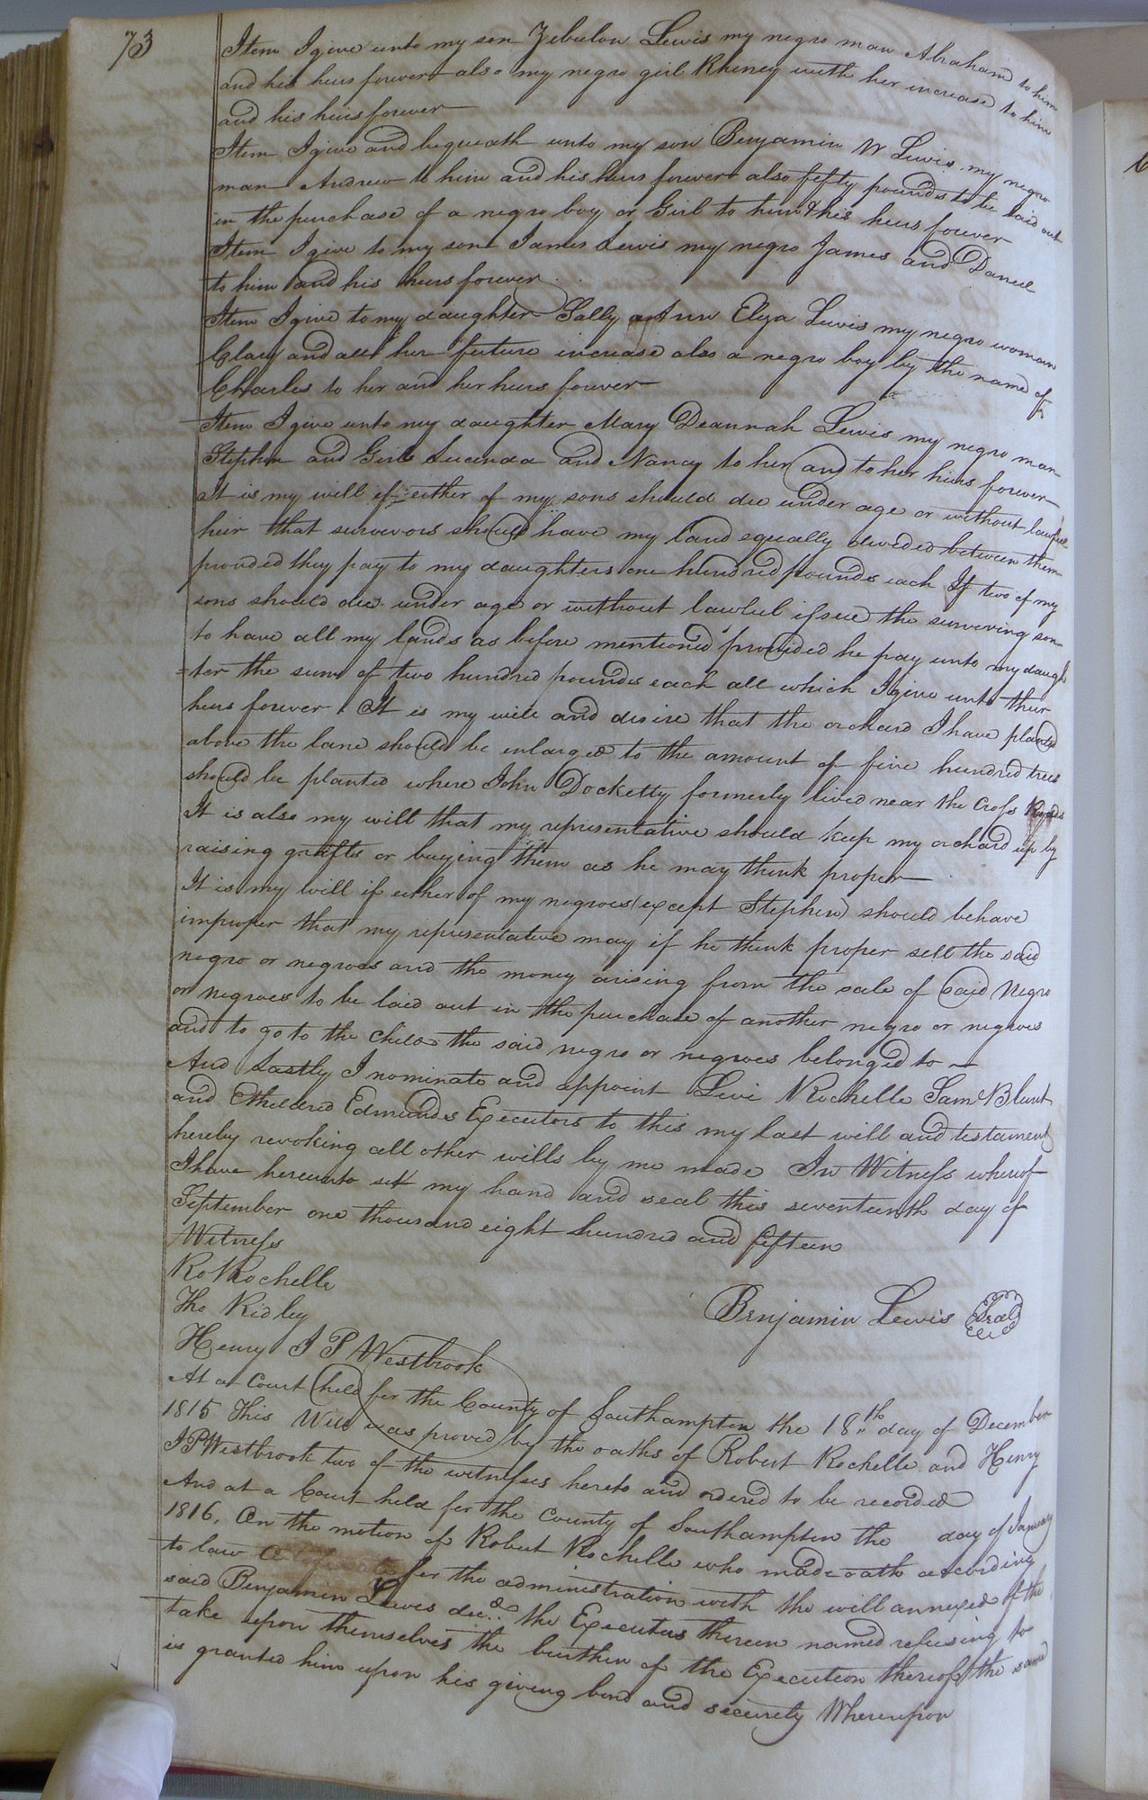 73
Item I give unto my son Zebulon Lewis my negro man Abraham to him
and his heirs forever also my negro girl Rhiney with her increase to him
and his heirs forever
Item I give and bequeath unto my son Benjamin W Lewis my negro
man Andrew to him and his heirs forever also fifty pounds to be laid out
in the purchase of a negro boy or Girl to him & his heirs forever
Item I give to my son James Lewis my negro James and Daniel
to him and his heirs forever
Item I give to my daughter Sally Ann Eliza Lewis my negro woman
Clary and all her future increase also a negro boy by the name of
Charles to her and her heirs forever
Item I give unto my daughter Mary Deannah Lewis my negro man
Stephen and Girls Lucinda and Nancy to her and to her heirs forever
It is my will if either of my sons should die under age or without lawful
heir that survivors should have my land equally devided between them
provided they pay to my daughters one hundred pounds each If two of my
sons should die under age or without lawful issue the surviving son
to have all my lands as before mentioned provided he pay unto my daugh
=ter the sum of two hundred pounds each all which I give unto their
heirs forever It is my will and desire that the orchard I have planted
above the lane should be enlarged to the amount of five hundred trees
should be planted where John Docketty formerly lived near the Cross Roads
It is also my will that my representative should keep my orchard up by
raising grafts or buying them as he may think proper
It is my will if either of my negroes (except Stephen) should behave
improper that my representative may if he think proper sell the said
negro or negroes and the money arising from the sale of said Negro
or negroes to be laid out in the purchase of another negro or negroes
and to go to the child the said negro or negroes belonged to
And Lastly I nominate and appoint Levi Rochelle Saml Blunt
and Etheldred Edmunds Executors to this my last will and testament
hereby revoking all other wills by me made In Witness whereof
I have hereunto set my hand and seal this seventeenth day of
September one thousand eight hundred and fifteen
Witness
Ro Rochelle
Tho Ridley
Benjamin Lewis Seal
Henry J P Westbrook
At at Court held for the County of Southampton the 18th day of December
1815 This Will was proved by the oaths of Robert Rochelle and Henry
J P Westbrook two of the witnesses hereto and ordered to be recorded
And at a Court held for the County of Southampton the day of January
1816. On the motion of Robert Rochelle who made oath according
to law for the administration with the will annexed of the
said Benjamin Lewis decd. the Executors therein named refusing to
take upon themselves the burthen of the Execution thereof the same
is granted him upon his giving bond and security Whereupon